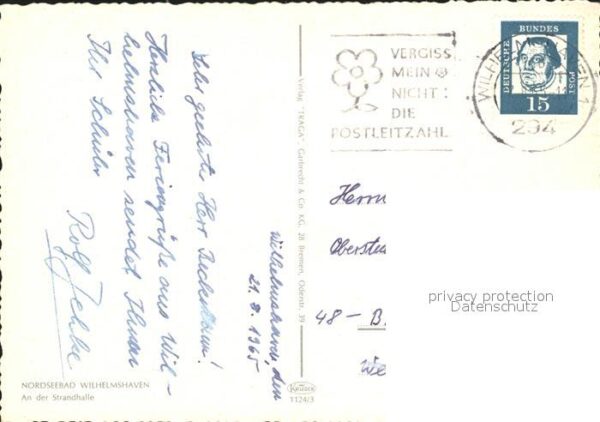 Wilhelmshaven, den
21. 8. 1965
Sehr geehrter Herr
Herzliche Feriengrüße aus Wil-
helmshaven sendet Ihnen
Ihr Schüler
Rolf
NORDSEEBAD WILHELMSHAVEN
An der Strandhalle
Verlag "TRAGA", Garbrecht & Co. KG, 28 Bremen, Oderstr. 39
KRÜGER
1124/3
VERGISS
MEIN
NICHT:
DIE
POSTLEITZAHL
WILHELMSHAVEN 1
294
DEUTSCHE BUNDES POST
15
Herrn
Oberstu
48 — B
privacy protection
Datenschutz